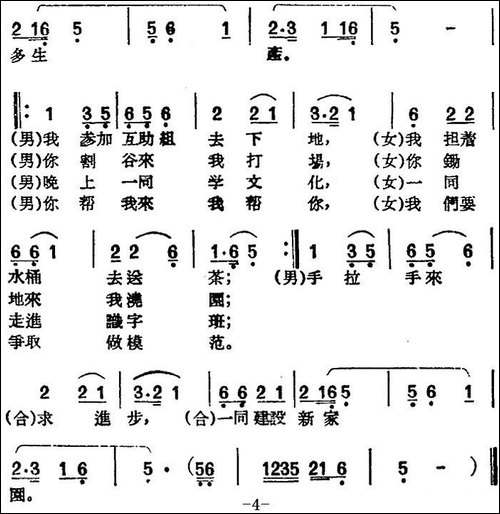 2 1 6 5 | 5 6 1 | 2·3 1 1 6 | 5 - |
多生 產。
‖: 1 3 5 | 6 5 6 | 2 2 1 | 3·2 1 | 6 2 2 |
(男)我 参加 互助組 去 下 地, (女)我 担着
(男)你 割 谷來 我 打 場, (女)你 鋤
(男)晚 上 一同 学 文 化, (女)一 同
(男)你 帮 我來 我 帮 你, (女)我 們要
6 6 1 | 2 2 6 | 1·6 5 :‖ 1 3 5 | 6 5 6 |
水桶 去送 茶; (男)手 拉 手來
地來 我澆 園;
走進 識字 班;
爭取 做模 范。
2 2 1 | 3·2 1 | 6 6 2 1 | 2 1 6 5 | 5 6 1 |
(合)求 進 步, (合)一同 建設 新 家
2·3 1 6 | 5 · (5 6 | 1 2 3 5 2 1 6 | 5 - ) ‖
園。
-4-